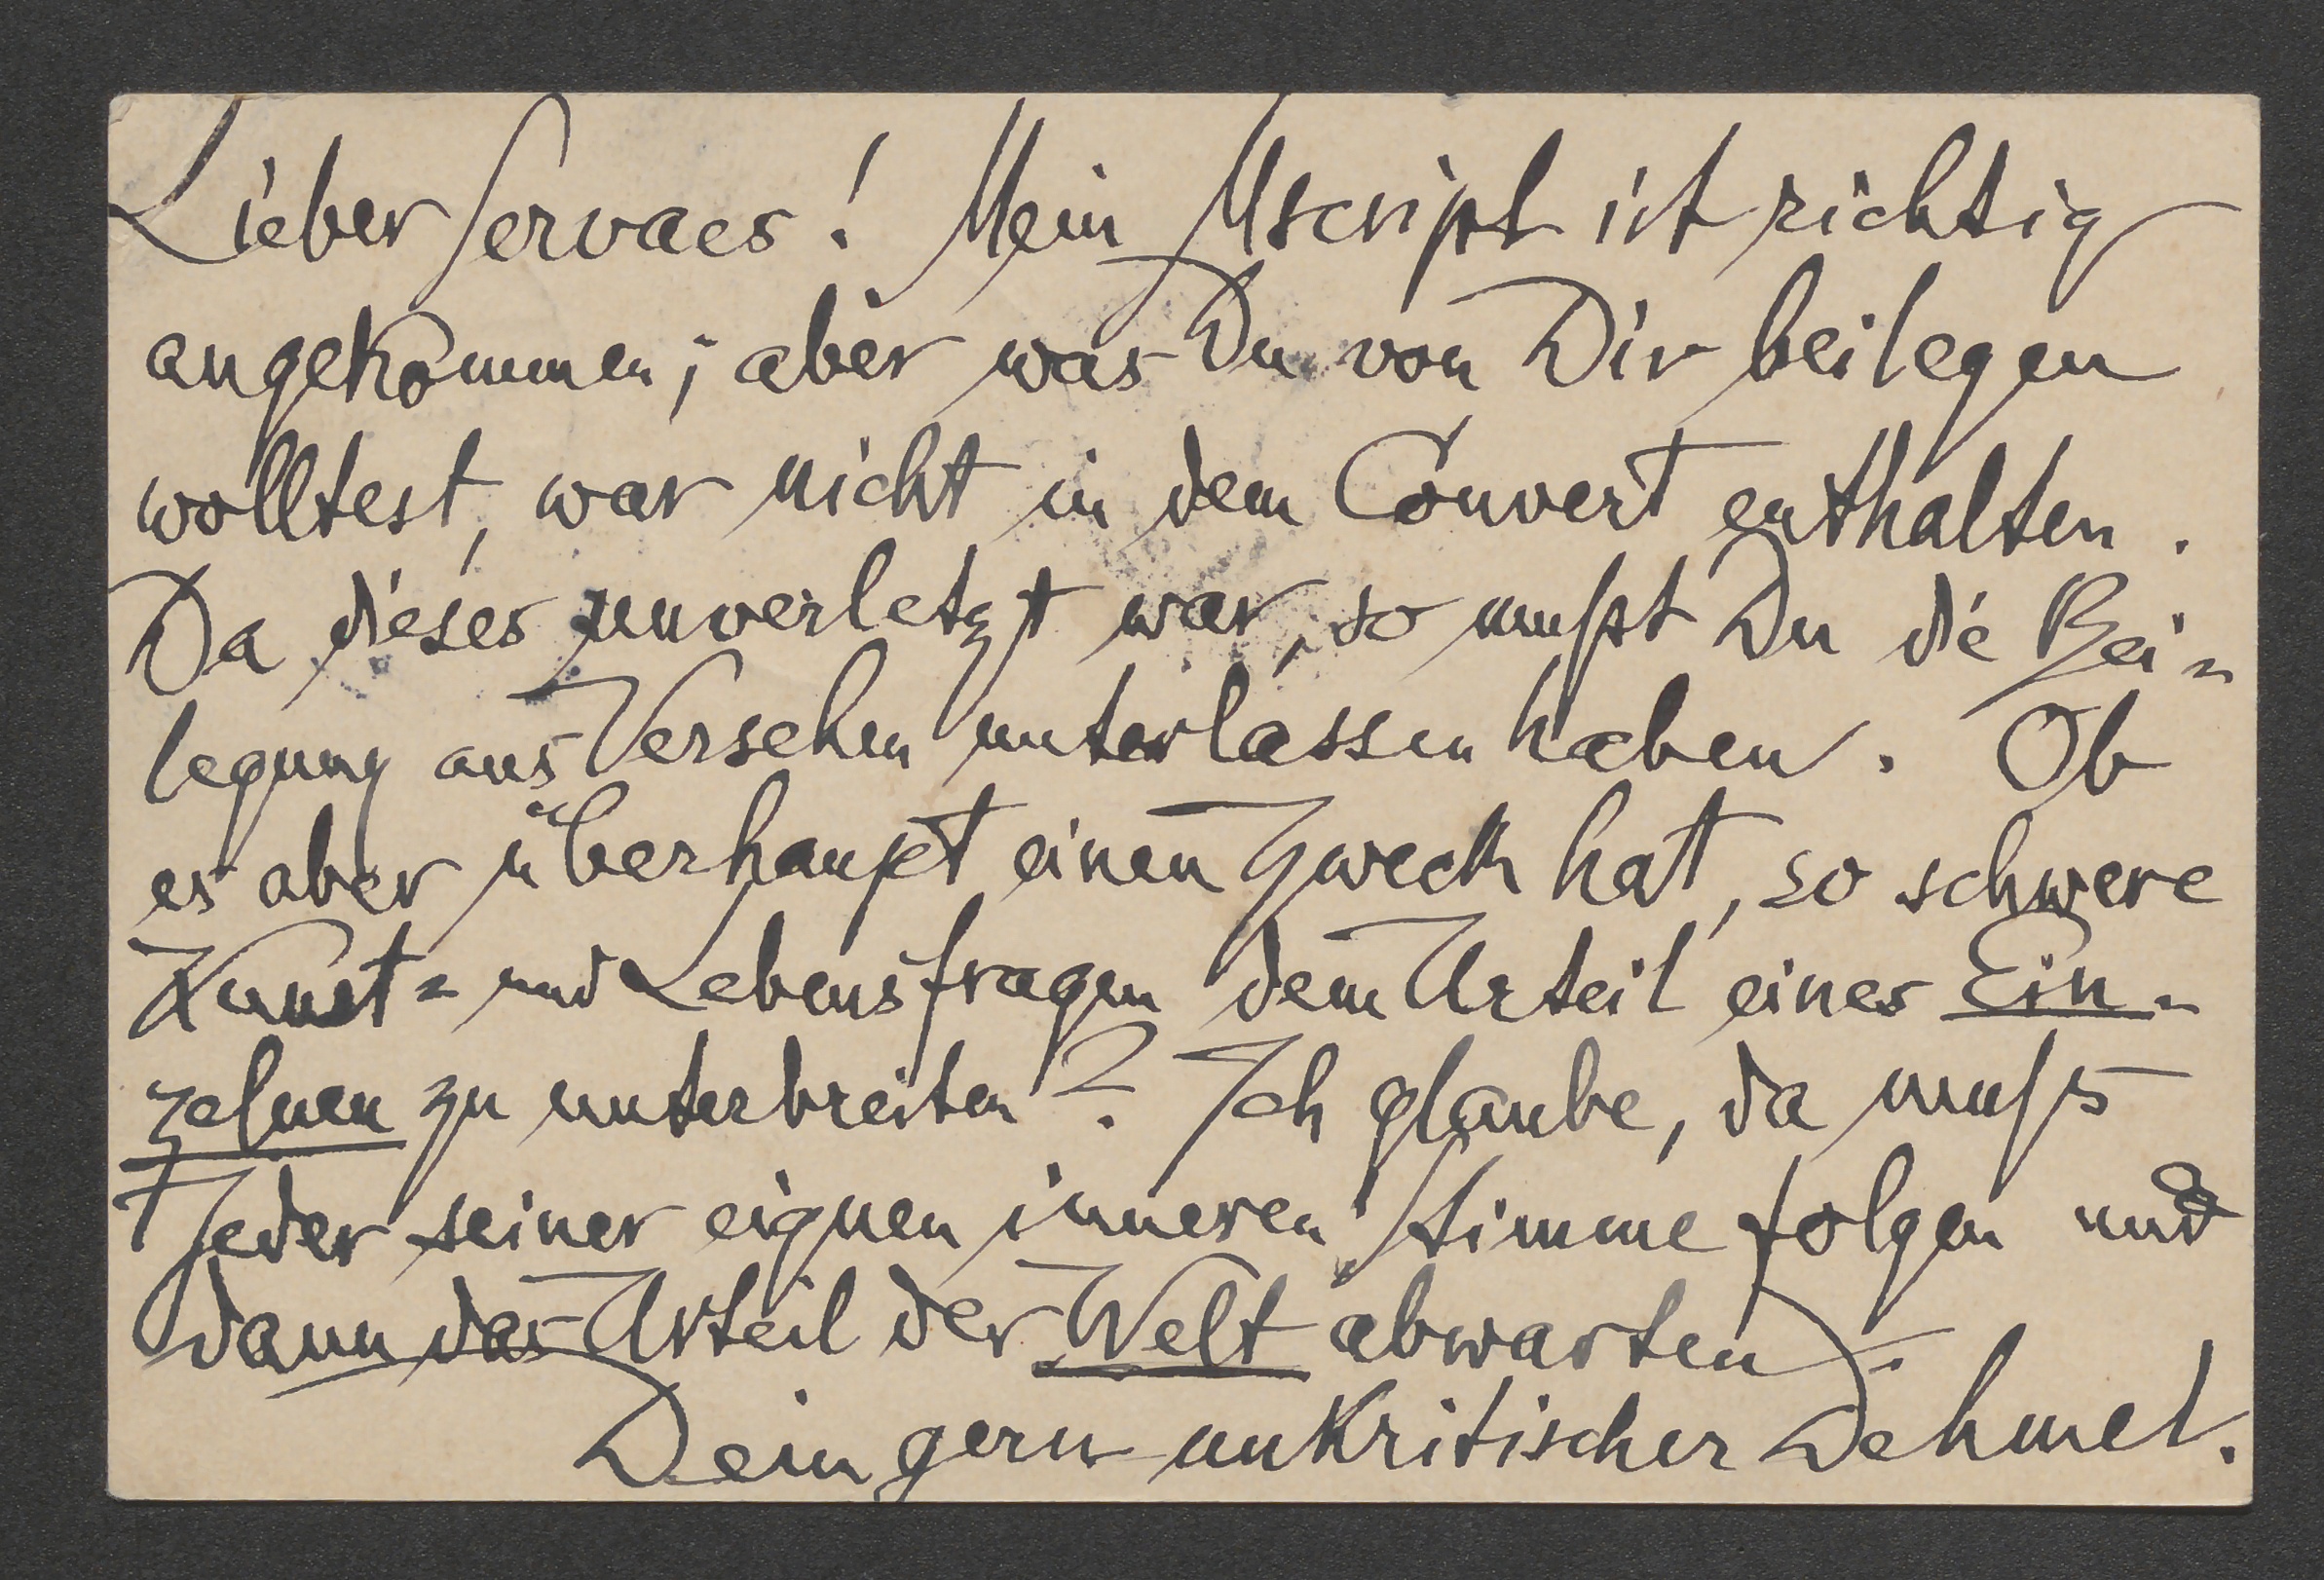 Lieber Servaes! Mein Mscript ist richtig
angekommen; aber was Du von Dir beilegen
wolltest, war nicht in dem Couvert enthalten.
Da dieses unverletzt war, so mußt Du die Bei=
legung aus Versehen unterlassen haben. Ob
es aber überhaupt einen Zweck hat, so schwere
Kunst= und Lebensfragen dem Urteil eines Ein=
zelnen zu unterbreiten? Ich glaube, da muß
Jeder seiner eignen inneren Stimme folgen und
dann das Urteil der Welt abwarten.
Dein gern unkritischer Dehmel.